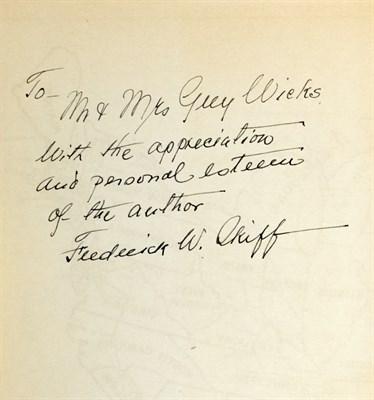 To—
Mr & Mrs Guy Wicks
With the appreciation
and personal esteem
of the author
Frederick W. Skiff